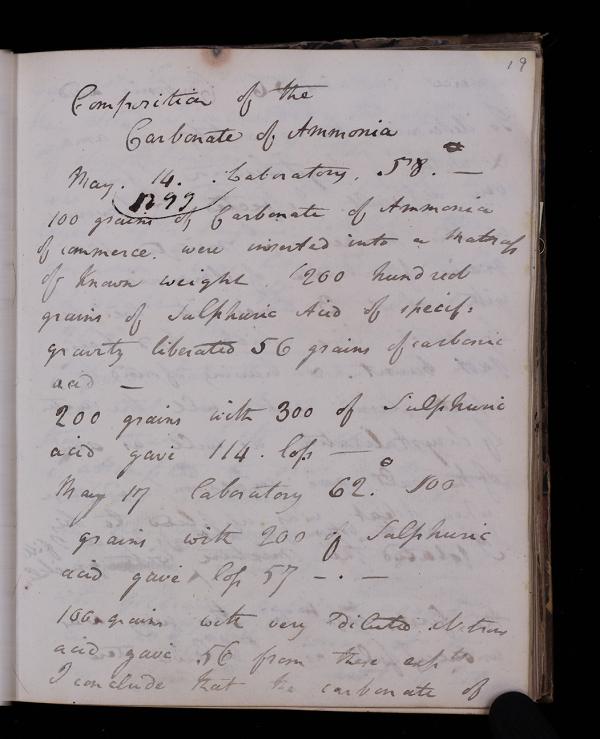 19
Composition of the
Carbonate of Ammonia
May. 14. Laboratory. 58.° —
1799
100 grains of Carbonate of Ammonia
of commerce. were inserted into a Matrass
of Known weight. 200 hundred
grains of Sulphuric Acid of specif:
gravity liberated 56 grains of carbonic
acid —
200 grains with 300 of Sulphuric
acid gave 114. loss —
May 17 Laboratory 62.° 100
grains with 200 of Sulphuric
acid gave loss 57 — . —
100 grains with very diluted Nitrous
acid gave 56 from these expts
I conclude that the carbonate of